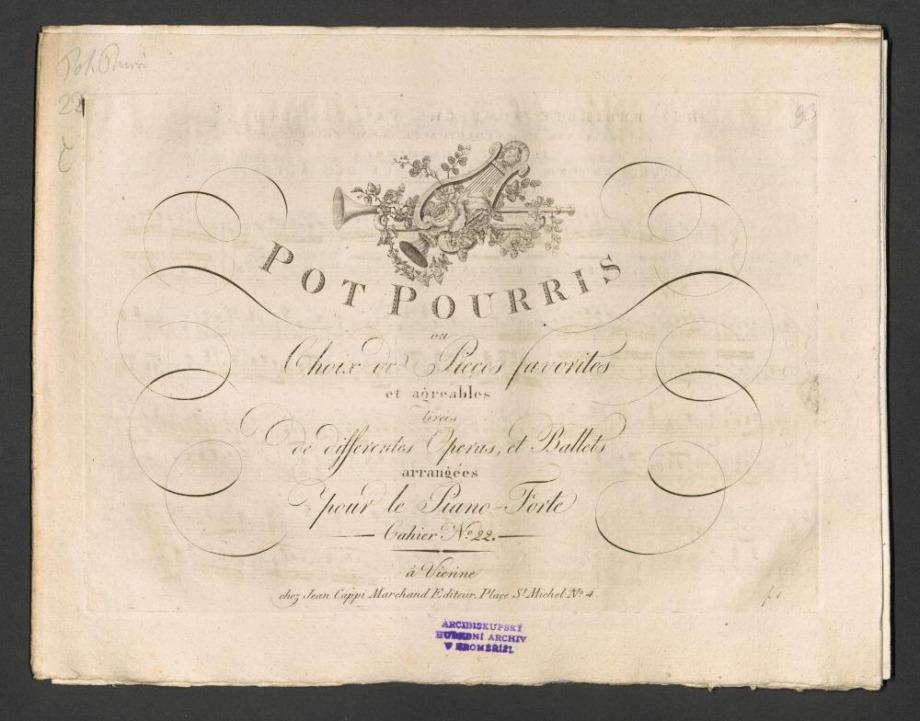 Pot. Pourri
22
93
POT POURRIS
ou
Choix de Pieçes favorites
et agreables
tirées
de differentes Operas, et Ballets
arrangées
pour le Piano-Forte
Cahier No 22.
à Vienne
chez Jean Cappi Marchand Editeur, Plaçe St Michel No 4.
ARCIBISKUPSKÝ
HUDEBNÍ ARCHIV
V KROMĚŘÍŽI.